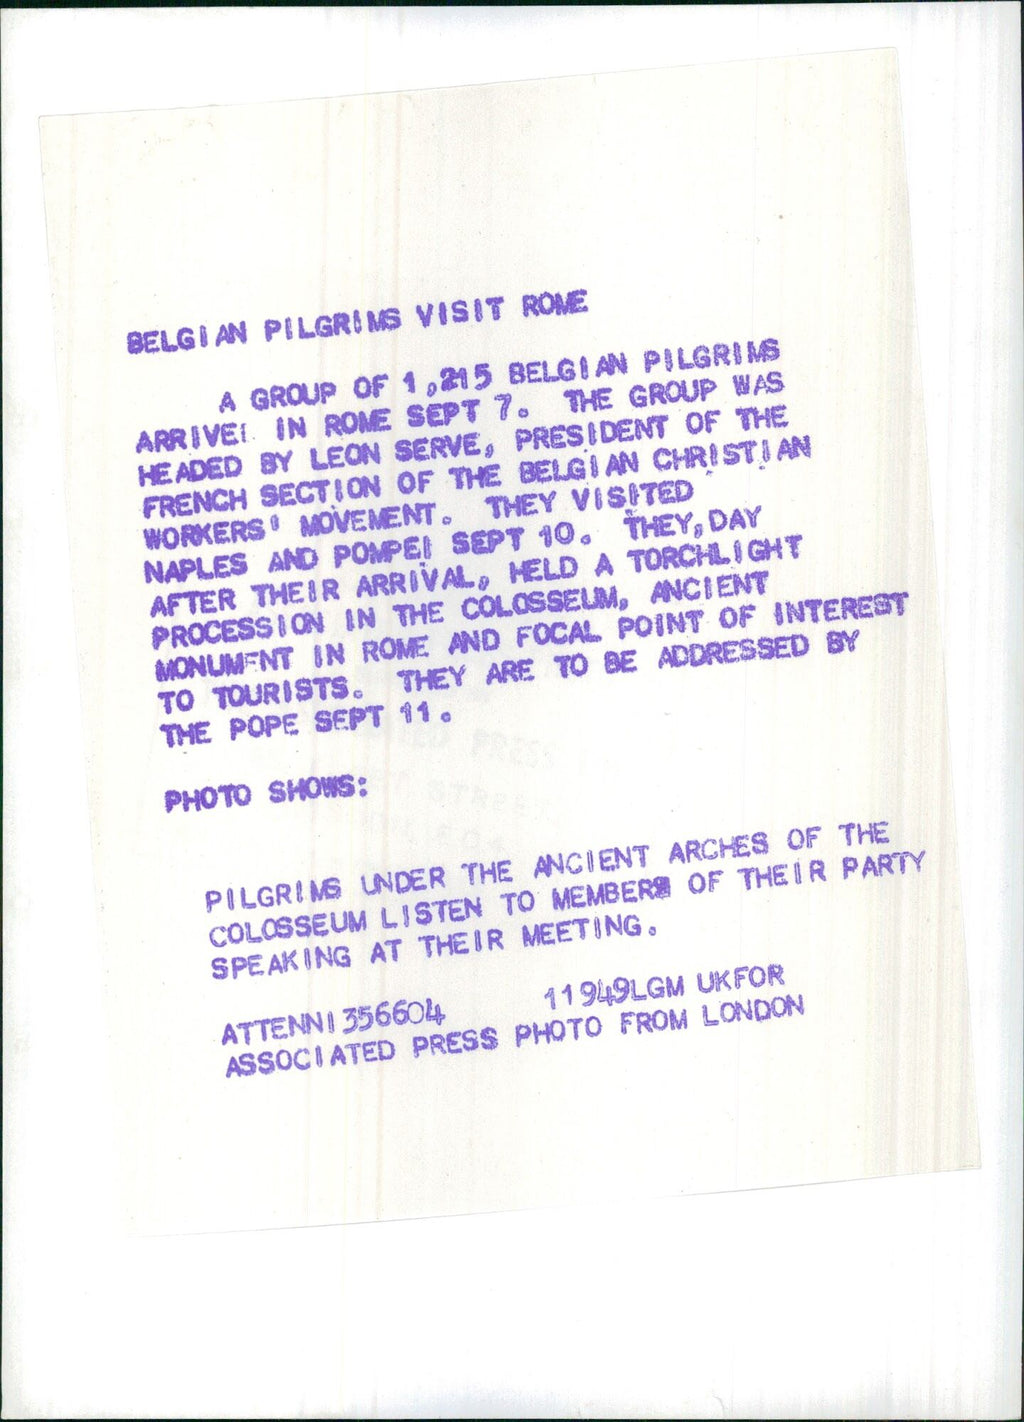 BELGIAN PILGRIMS VISIT ROME
A GROUP OF 1,215 BELGIAN PILGRIMS
ARRIVE IN ROME SEPT 7. THE GROUP WAS
HEADED BY LEON SERVE, PRESIDENT OF THE
FRENCH SECTION OF THE BELGIAN CHRISTIAN
WORKERS' MOVEMENT. THEY VISITED
NAPLES AND POMPEI SEPT 10. THEY, DAY
AFTER THEIR ARRIVAL, HELD A TORCHLIGHT
PROCESSION IN THE COLOSSEUM, ANCIENT
MONUMENT IN ROME AND FOCAL POINT OF INTEREST
TO TOURISTS. THEY ARE TO BE ADDRESSED BY
THE POPE SEPT 11.
PHOTO SHOWS:
PILGRIMS UNDER THE ANCIENT ARCHES OF THE
COLOSSEUM LISTEN TO MEMBERS OF THEIR PARTY
SPEAKING AT THEIR MEETING.
ATTENNI356604 11949LGM UKFOR
ASSOCIATED PRESS PHOTO FROM LONDON